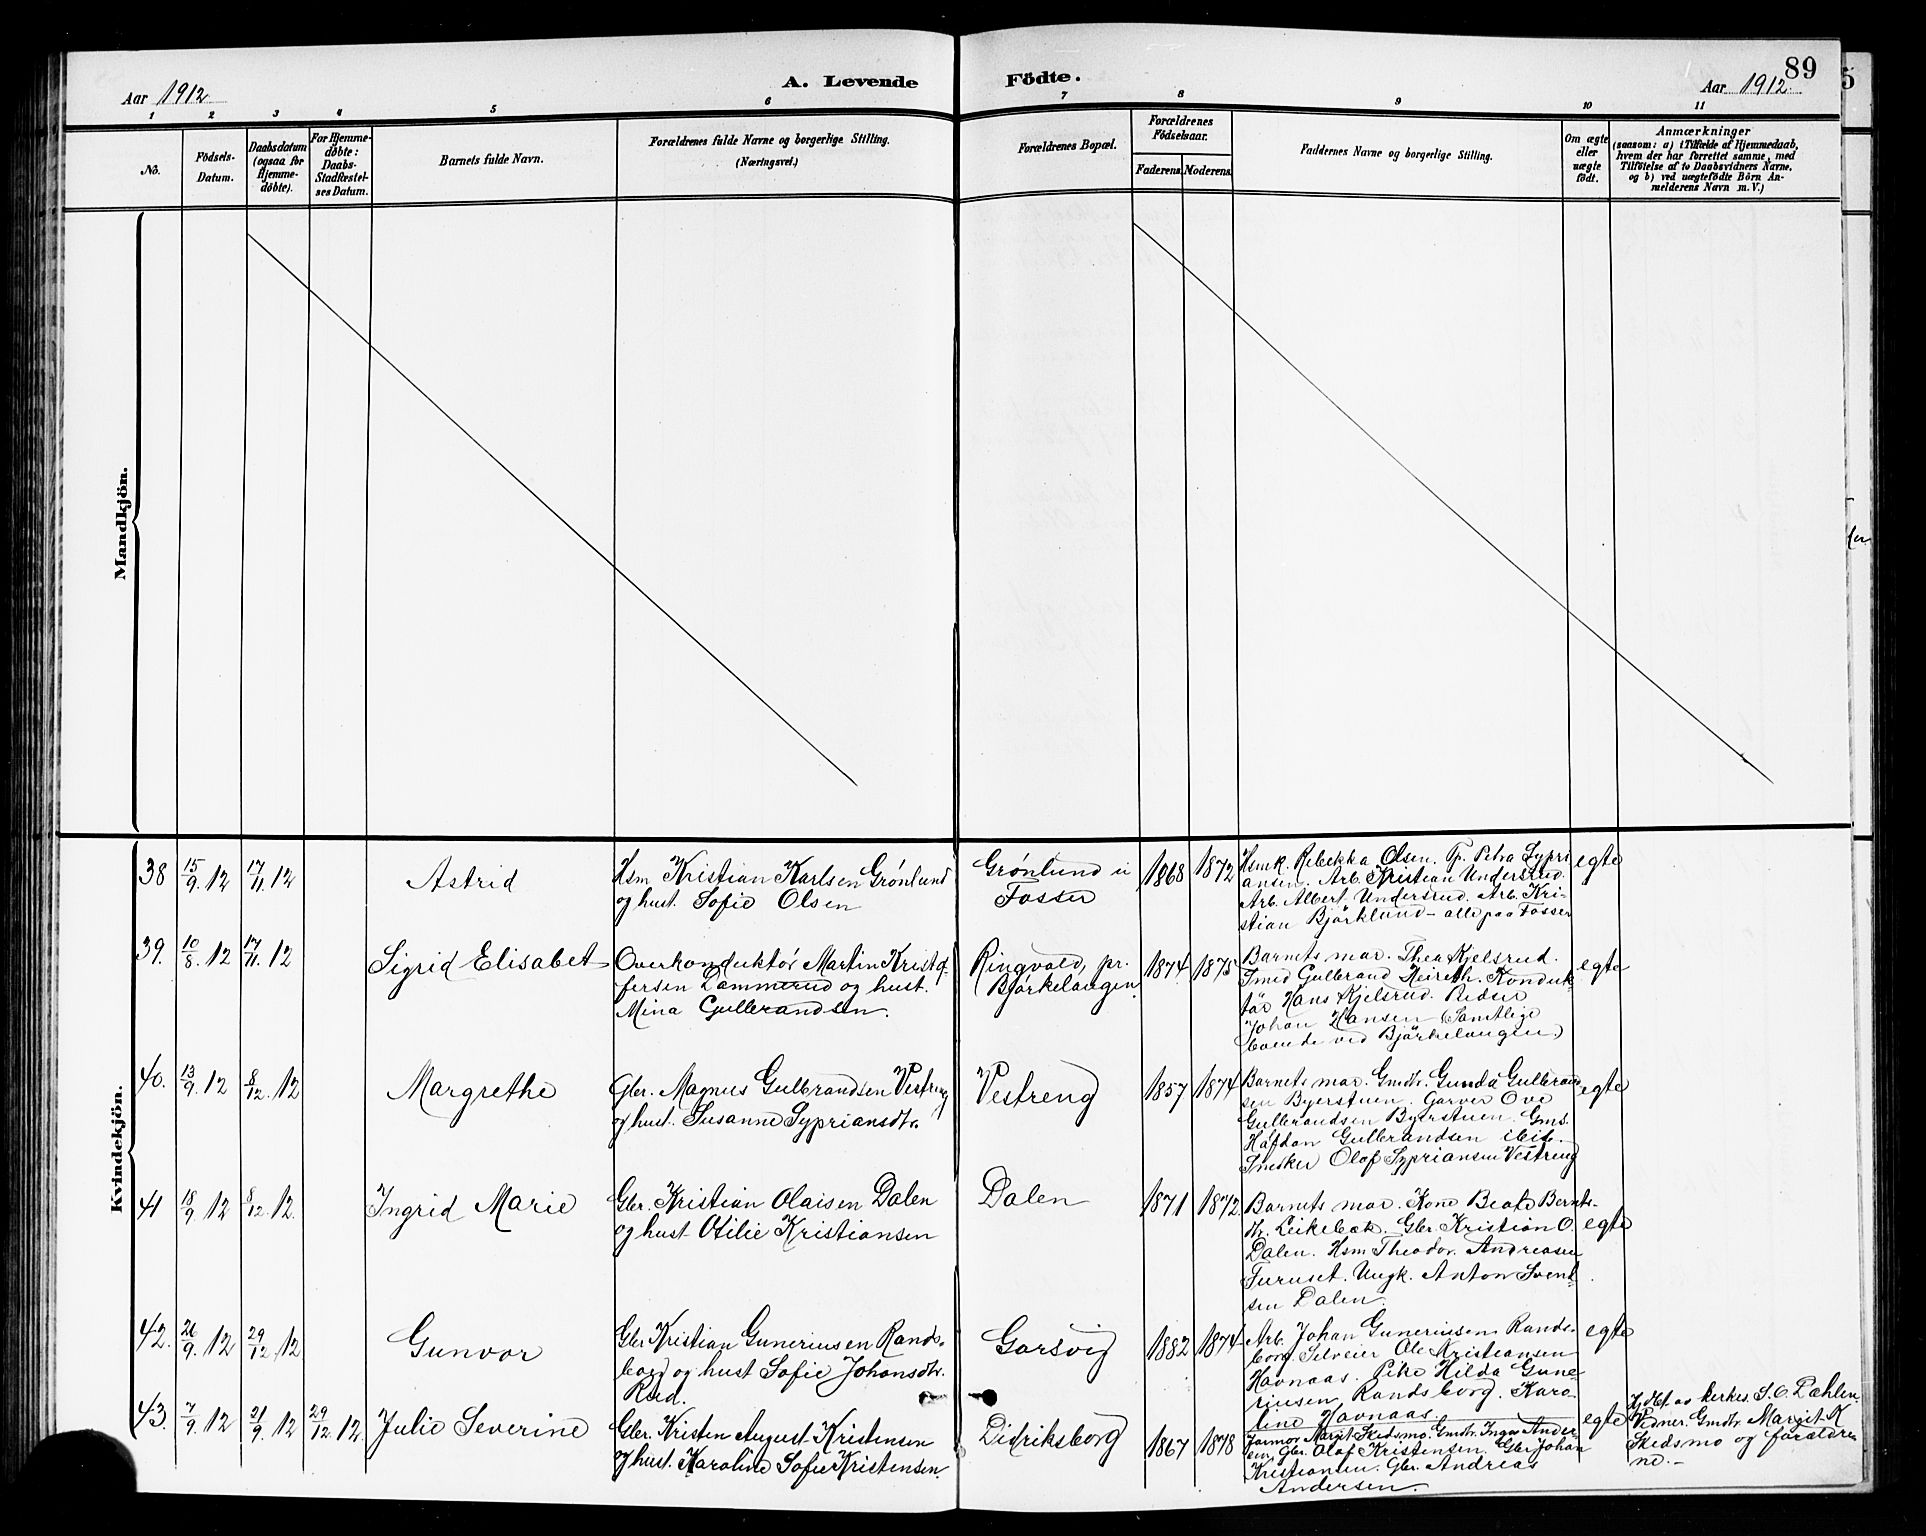 89
Aar 1912
A. Levende
Födte.
Aar 1912.
1 2 3 4 5 6 7 8 9 10 11
No.
Födsels-
Datum.
Daabsdatum
(ogsaa for
Hjemme-
döbte).
For Hjemme-
döbte:
Daabs-
Stadfæstel-
ses Datum.
Barnets fulde Navn.
Forældrenes fulde Navne og borgerlige Stilling.
(Næringsvei.)
Forældrenes Bopæl.
Forældrenes
Födselsaar.
Faderens.
Moderens.
Faddernes Navne og borgerlige Stilling.
Om ægte
eller
uægte
födt.
Anmærkninger
(saasom: a) i Tilfælde af Hjemmedaab,
hvem der har forrettet samme, med
Tilföielse af to Daabsvidners Navne,
og b) ved uægtefödte Börn An-
melderens Navn m. V.)
Mandkjön.
Kvindekjön.
38
15/9. 12
17/11. 12
Astrid
Hsm. Kristian Karlsen Grønlund
og hust. Sofie Olsen
Grønlund u
Fosser
1868
1872
Hsmk. Rebekka Olsen. Tp. Petra Sypri
ansen. Arb. Kristian Undersrud.
Arb. Albert Undersrud. Arb. Kri-
stian Bjørklund - alle paa Fosser
egte
39.
10/8. 12
17/11. 12
Sigrid Elisabet
Overkonduktør Martin Kristof
fersen Lammerud og hust.
Mina Gulbrandsen.
Ringvold, pr.
Bjørkelangen.
1874
1875
Barnets mor. Thea Kjelsrud.
Smed Gulbrand Heireth. Konduk-
tør Hans Kjelsrud.
Johan Hansen (Samtlige
boende ved Bjørkelangen)
egte
40.
13/9. 12
8/12. 12
Margrethe
Gbr. Magnus Gulbrandsen Vestreng
og hust. Susanne Sypriansdtr.
Vestreng
1857
1874
Barnets mor. Gmdtr. Gunda Gulbrand
sen Byerstuen. Garver Ove
Gulbrandsen Byerstuen. Gms.
Halfdan Gulbrandsen ibid.
Snekker Olaf Sypriansen Vestreng
egte
41
18/9. 12
8/12. 12.
Ingrid Marie
Gbr. Kristian Olaisen Dalen
og hust Otilie Kristiansen
Dalen
1871
1872
Barnets mor. Kone Beate Bernts-
dtr. Leikebæk. Gbr. Kristian O.
Dalen. Hsm Theodor Andreasen
Furuset. Ungk. Anton Svend-
sen Dalen.
egte
42.
26/9. 12
29/12. 12
Gunvor
Gbr. Kristian Guneriusen Rands-
borg og hust Sofie Johansdtr.
Rud.
Garsvig
1882
1874
Arb. Johan Guneriusen Rands-
borg. Selveier Ole Kristiansen
Havnaas. Pike Hilda Gune-
riusen Randsborg. Karo-
line Havnaas
egte
43.
7/9. 12
21/9. 12
29/12. 12.
Julie Severine
Gbr. Kristen August Kristensen
og hust. Karoline Sofie Kristensen
Didriksborg
1867
1878
Jormor Margit Skedsmo. Gmdtr. Inga Ander
sen, Gbr. Olaf Kristensen. Gbr Johan
Kristiansen. Gbr. Andreas
Andersen.
egte
Hj.døbt av kirkes. S. O. Dahlen.
Vidner. Gmdtr. Margit K
Skedsmo og foreldre
ne.-